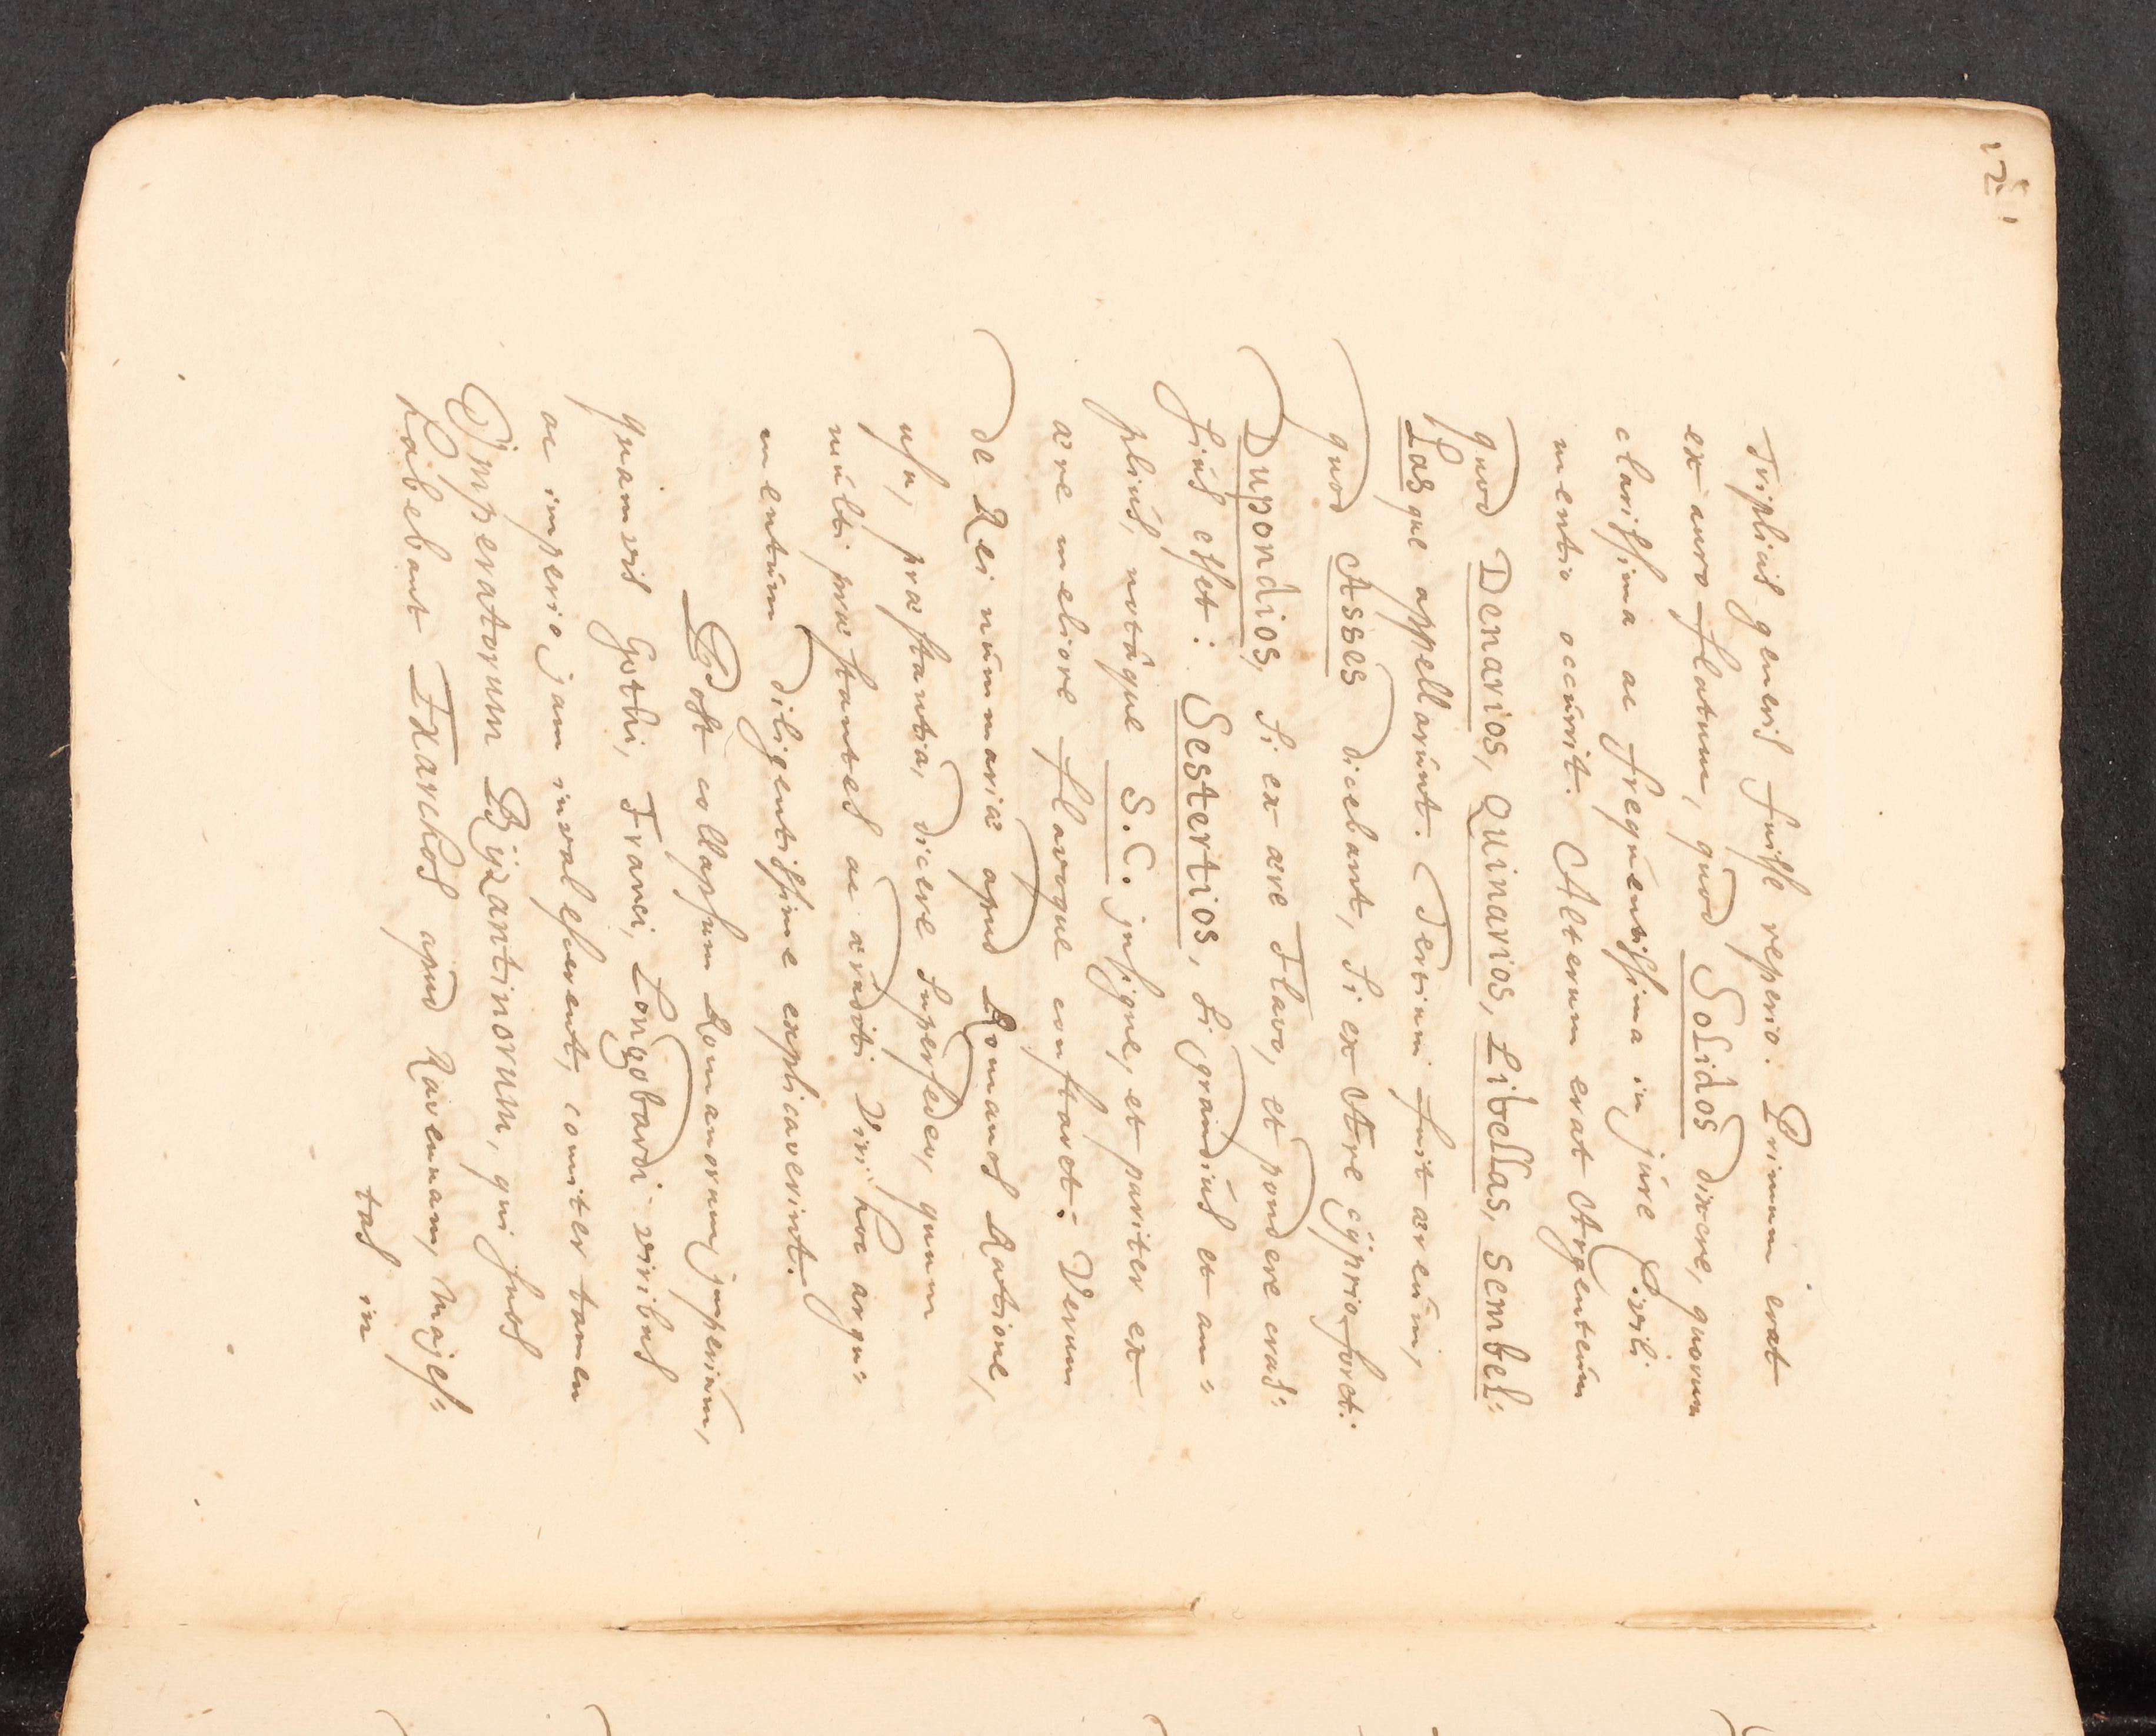 Triplicis generis fuisse reperio. Primum erat
ex auro flatum, quod Solidos dixere, quorum
clarissima ac frequentissima in jure Civili
mentio occurrit. Alterum erat Argenteum
quod Denarios, Quinarios, Libellas, Sembel=
lasque appellarunt. Tertium fuit æreum,
quod Asses dicebant, si ex Ære cÿprio foret:
Dupondios, si ex ære Flavo, et pondere cras=
sius esset: Sestertios, si grandius et am=
plius, notâque S.C. insigne, et pariter ex
ære meliore flavoque constaret: Verum
de Rei nummariæ apud Romanos Ratione,
usu, præstantia, dicere supersedeo, quum
multi præstantes ac eruditi Viri hoc argu=
mentum diligentissime explicaverint.
Post collapsum Romanorum imperium,
quamvis Gothi, Franci, Longobardi viribus
ac imperio jam invalescerent, comiter tamen
Imperatorum Bÿzantinorum, qui suos
habebant Exarchos apud Ravennam, Majes=
tas in